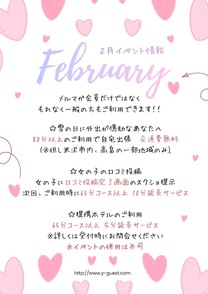 2月イベント情報
February
メルマガ会員だけではなく
もれなく一般の方もご利用できます!!
☆雪の日に外出が億劫なあなたへ
80分以上のご利用で自宅出張 交通費無料
(※但し米沢市内、高畠の一部地域のみ)
☆女の子の口コミ投稿
女の子に口コミ投稿完了画面のスクショ提示
次回、ご利用時に65分コース以上 10分延長サービス
☆提携ホテルのご利用
65分コース以上 5分延長サービス
※詳しくは受付時にお問合せください
※イベントの併用は不可
http://www.y-guest.com/